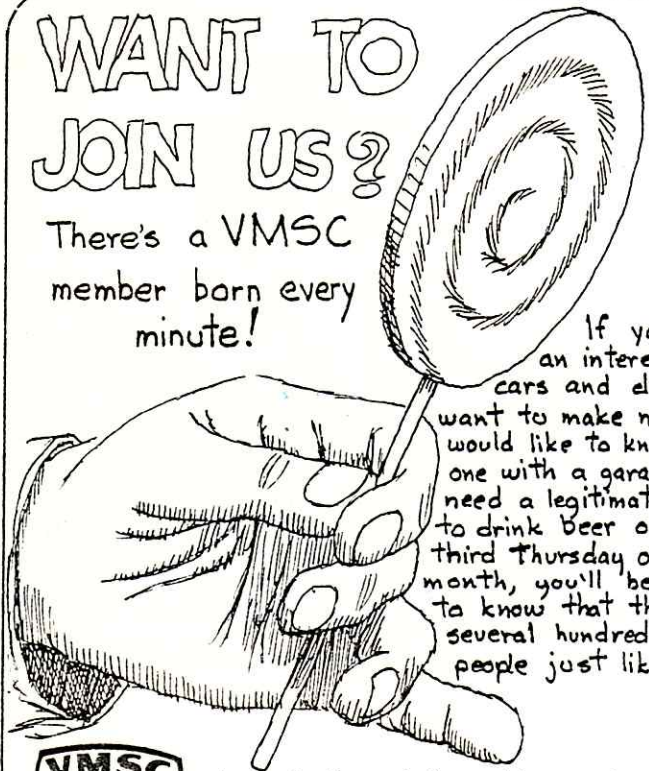 WANT TO
JOIN US?
There's a VMSC
member born every
minute!
If yo
an intere
cars and el
want to make n
would like to kn
one with a gara
need a legitimat
to drink beer o
third Thursday o
month, you'll be
to know that th
several hundred
people just lik
VMSC